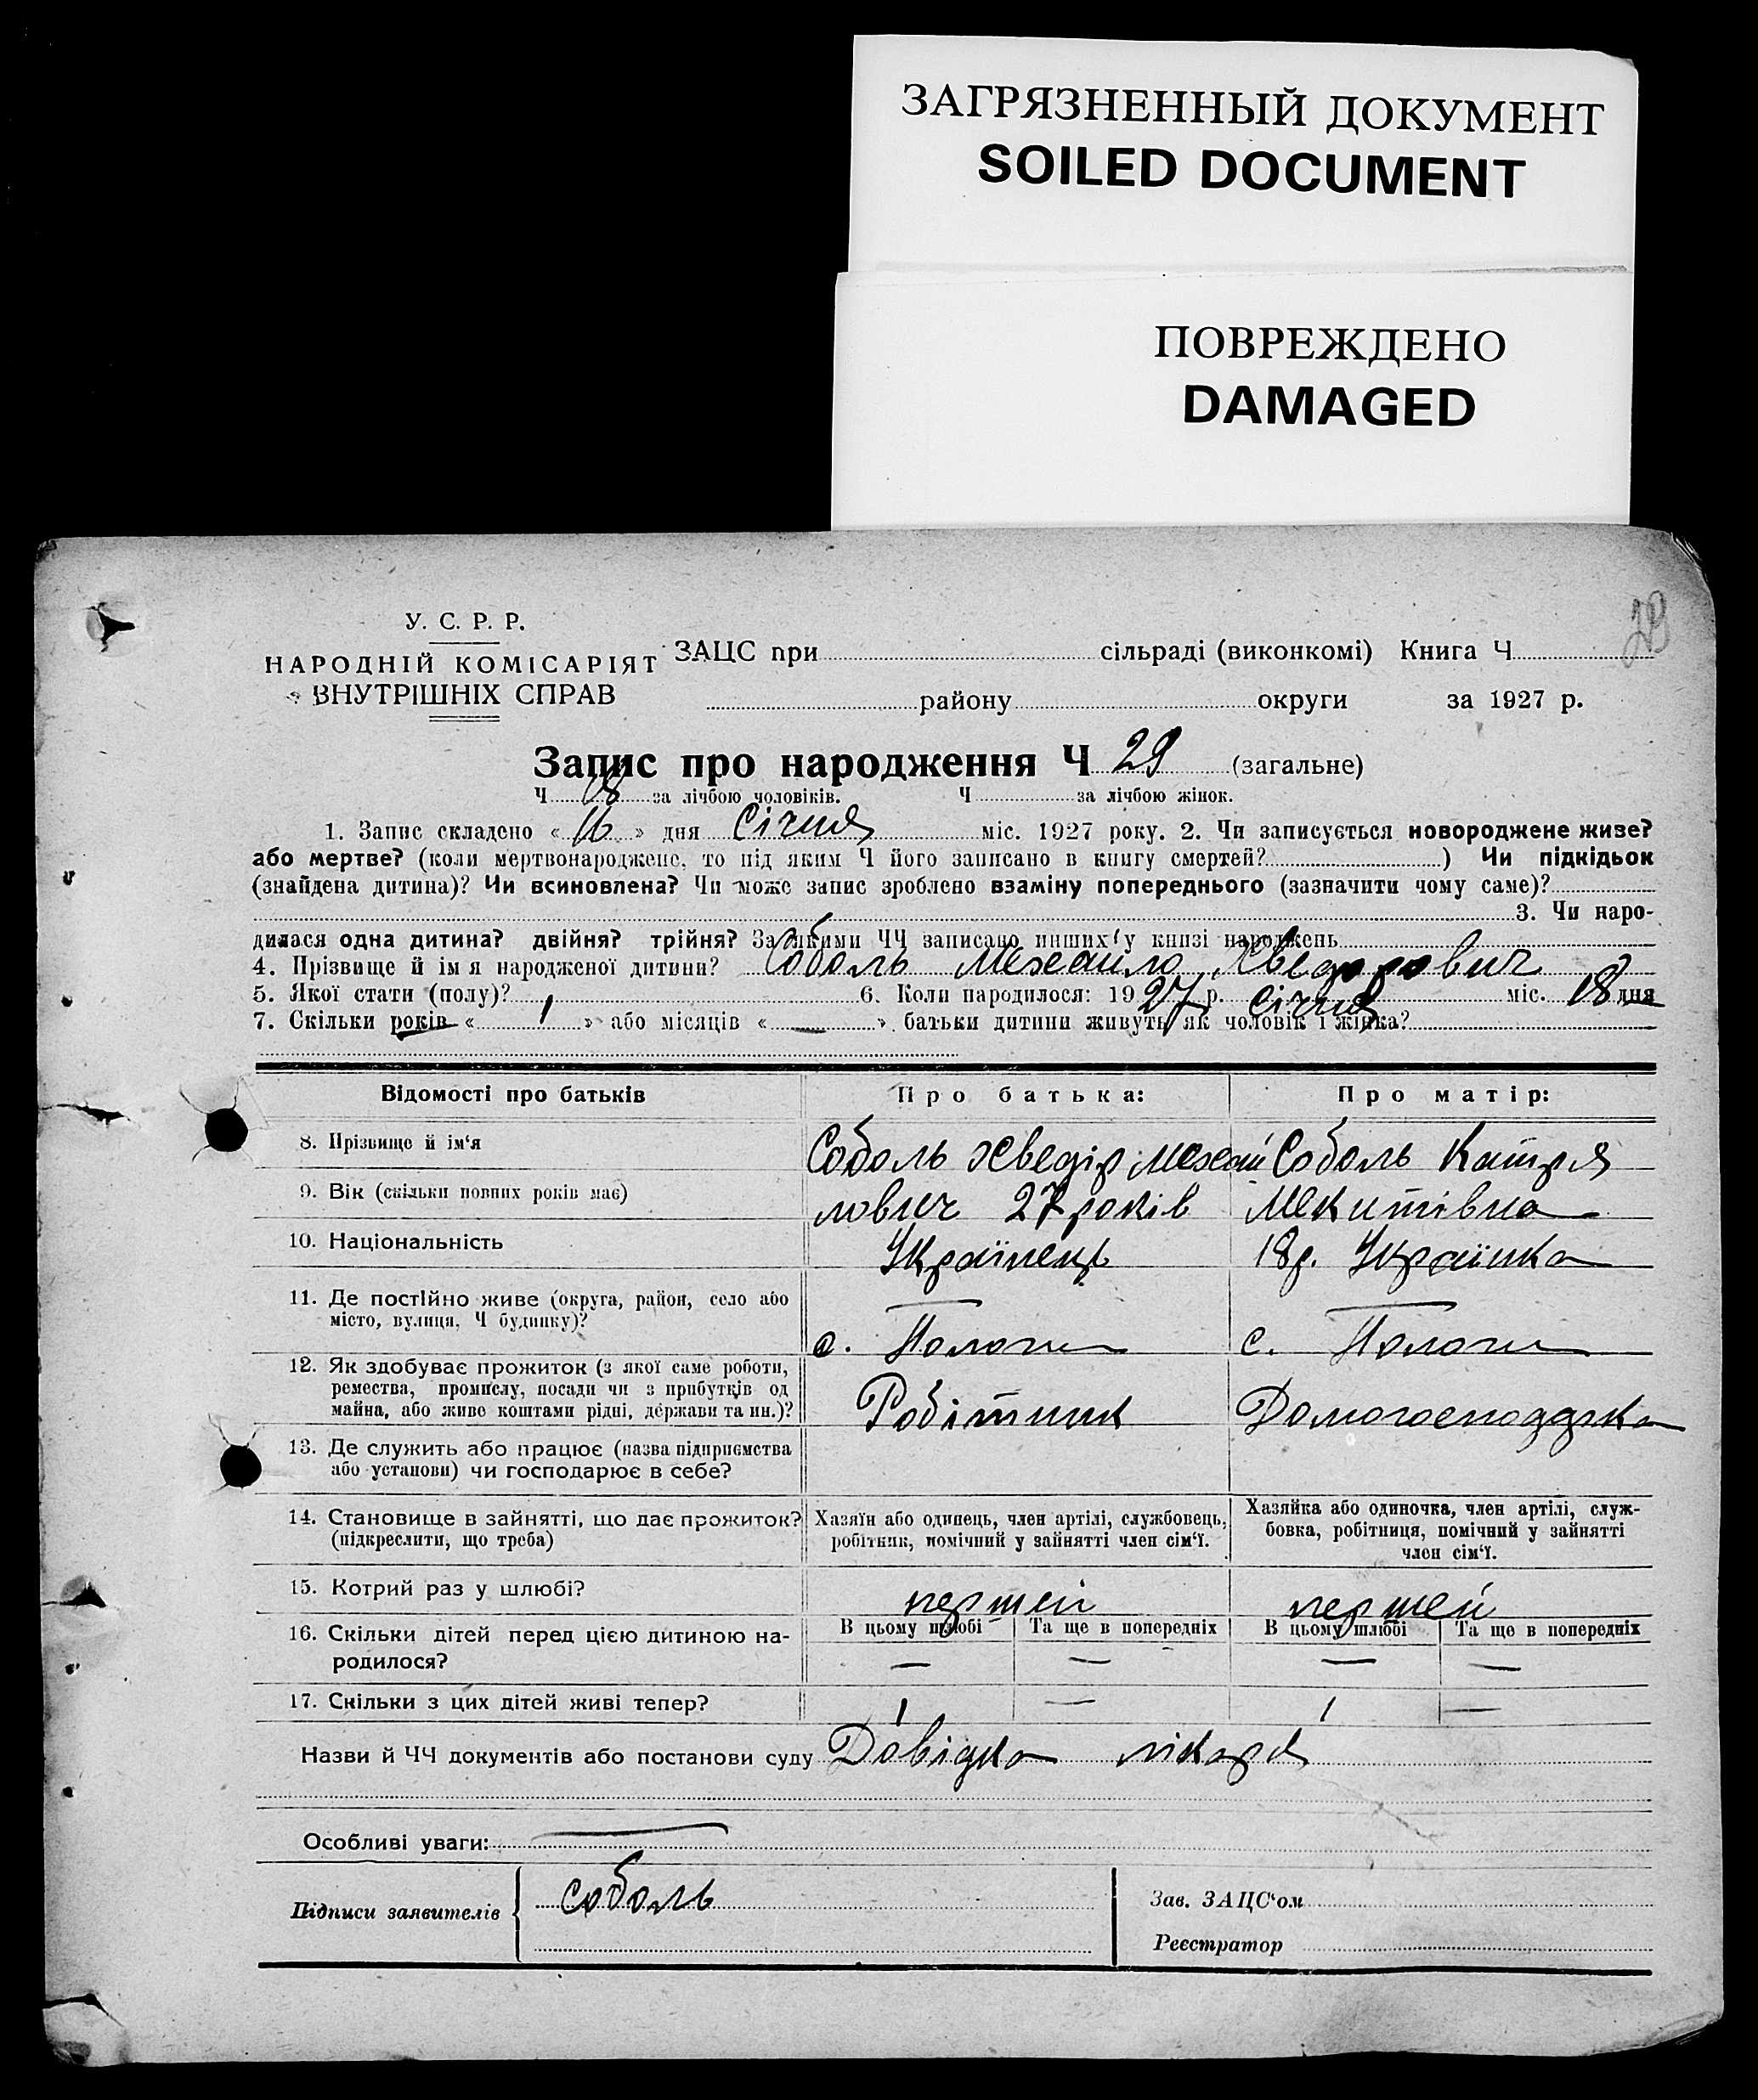 ЗАГРЯЗНЕННЫЙ ДОКУМЕНТ
SOILED DOCUMENT
ПОВРЕЖДЕНО
DAMAGED
29
У. С. Р. Р.
НАРОДНІЙ КОМІСАРІЯТ
ВНУТРІШНІХ СПРАВ
ЗАЦС при сільраді (виконкомі) Книга Ч
району округи за 1927 р.
Запис про народження Ч 29 (загальне)
Ч 18 за лічбою чоловіків. Ч за лічбою жінок.
1. Запис складено « 16 » дня Січня міс. 1927 року. 2. Чи записується новороджене живе?
або мертве? (коли мертвонароджене, то під яким Ч його записано в книгу смертей? ) Чи підкідьок
(знайдена дитина)? Чи всиновлена? Чи може запис зроблено взаміну попереднього (зазначити чому саме)?
3. Чи наро-
дилася одна дитина? двійня? трійня? За якими ЧЧ записано инших у книзі народжень
4. Прізвище й ім'я народженої дитини? Соболь Мехайло Хведорович
5. Якої стати (полу)? 1 6. Коли народилося: 1927 р. Січня міс. 18 дня
7. Скільки років « » або місяців « — » батьки дитини живуть як чоловік і жінка?
Відомості про батьків Про батька: Про матір:
8. Прізвище й ім'я Соболь Хведір Мехай Соболь Катря
9. Вік (скільки повних років має) лович 27 років Мекитівна
10. Національність Українець 18р. Українка
11. Де постійно живе (округа, район, село або
місто, вулиця, Ч будинку)? с. Пологи с. Пологи
12. Як здобуває прожиток (з якої саме роботи,
ремества, промислу, посади чи з прибутків од
майна, або живе коштами рідні, держави та ин.)? Робітник Домогосподарка
13. Де служить або працює (назва підприємства
або установи) чи господарює в себе?
14. Становище в зайнятті, що дає прожиток?
(підкреслити, що треба)
Хазяїн або одинець, член артілі, службовець,
робітник, помічний у зайнятті член сім'ї.
Хазяйка або одиночка, член артілі, служ-
бовка, робітниця, помічний у зайнятті
член сім'ї.
15. Котрий раз у шлюбі? першей першей
16. Скільки дітей перед цією дитиною на-
родилося?
В цьому шлюбі Та ще в попередніх В цьому шлюбі Та ще в попередніх
— — — —
17. Скільки з цих дітей живі тепер? 1 — 1 —
Назви й ЧЧ документів або постанови суду Довідка лікаря
Особливі уваги: —
Підписи заявителів Соболь
Зав. ЗАЦС'ом
Реєстратор